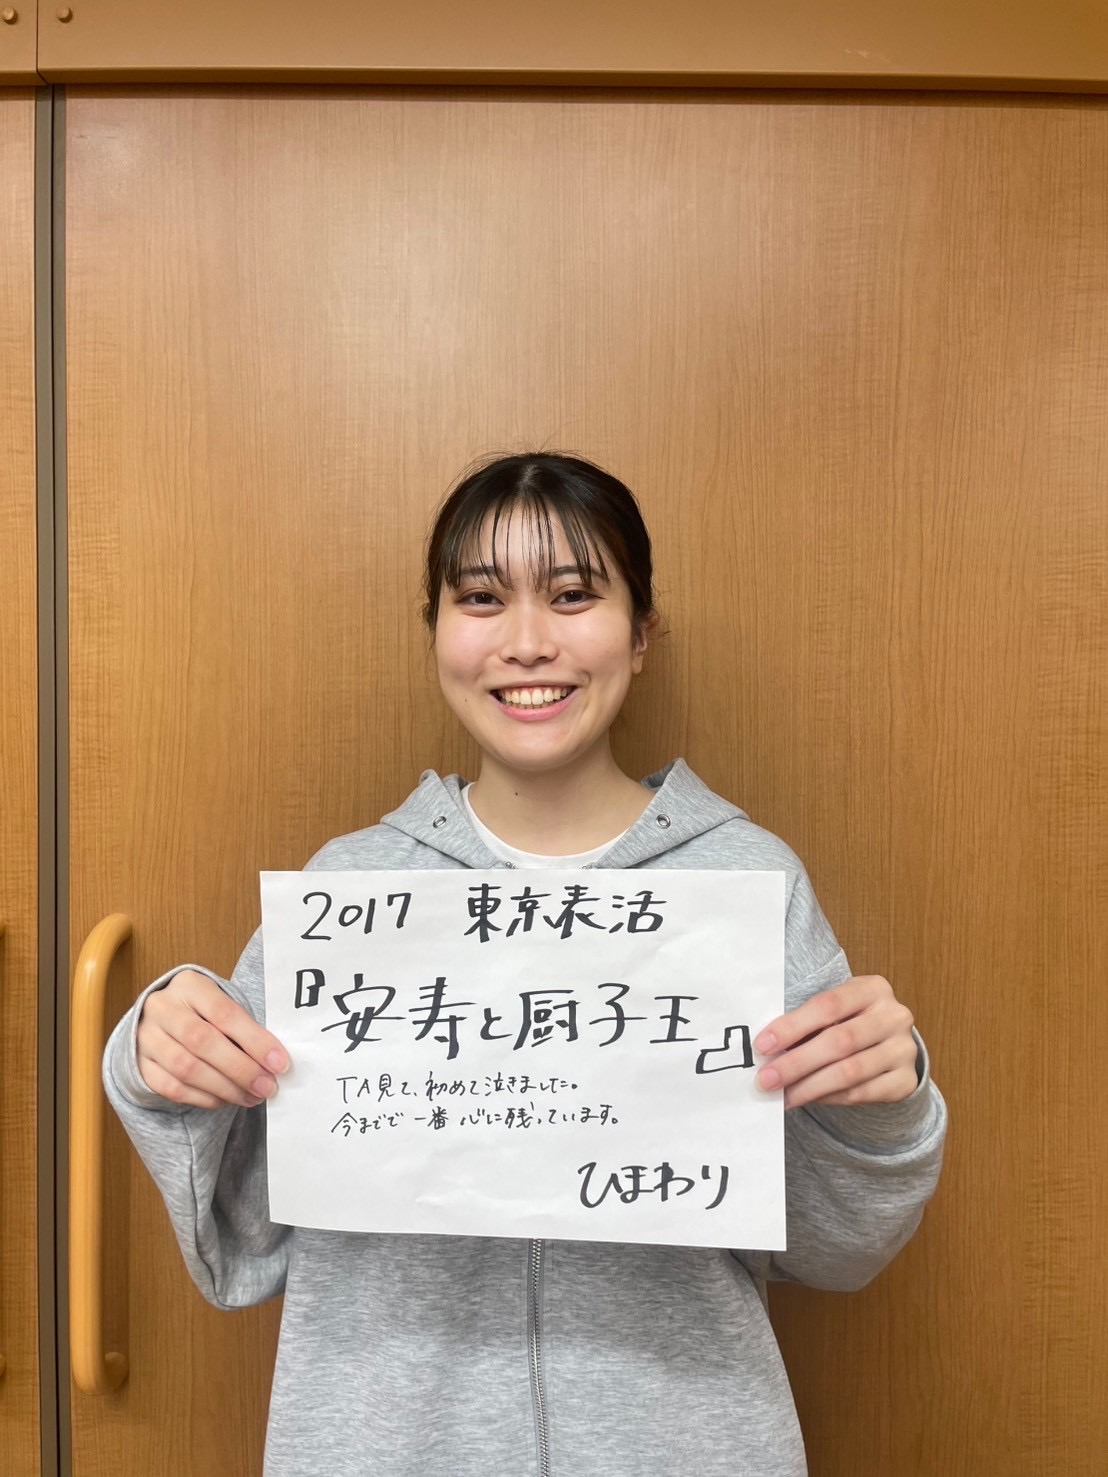 2017 東京表活
『安寿と厨子王』
TA見て、初めて泣きました。
今までで一番心に残っています。
ひまわり